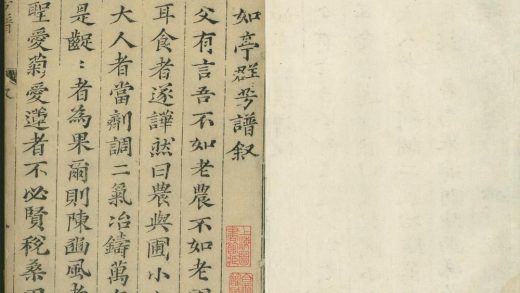 如亭群芳譜叙
父有言吾不如老農不如老
耳食者遂譁然曰農與圃小
大人者當劑調二氣冶鑄萬
是齪〻者為果爾則陳豳風者
聖愛菊愛蓮者不必賢稅桑田